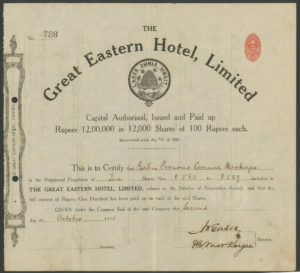 THE
No. 788
Great Eastern Hotel, Limited
LABOR OMNIA VINCIT
Capital Authorised, Issued and Paid up
Rupees 12,00,000 in 12,000 Shares of 100 Rupees each.
Incorporated under Act VI. of 1882.
This is to Certify
is the Registered Proprietor of Ten Shares Nos.
THE GREAT EASTERN HOTEL, LIMITED, subject to the Articles of Association thereof, and that the
full amount of Rupees One Hundred has been paid up on each of the said Shares.
GIVEN under the Common Seal of the said Company this Second
day of October
Directors.